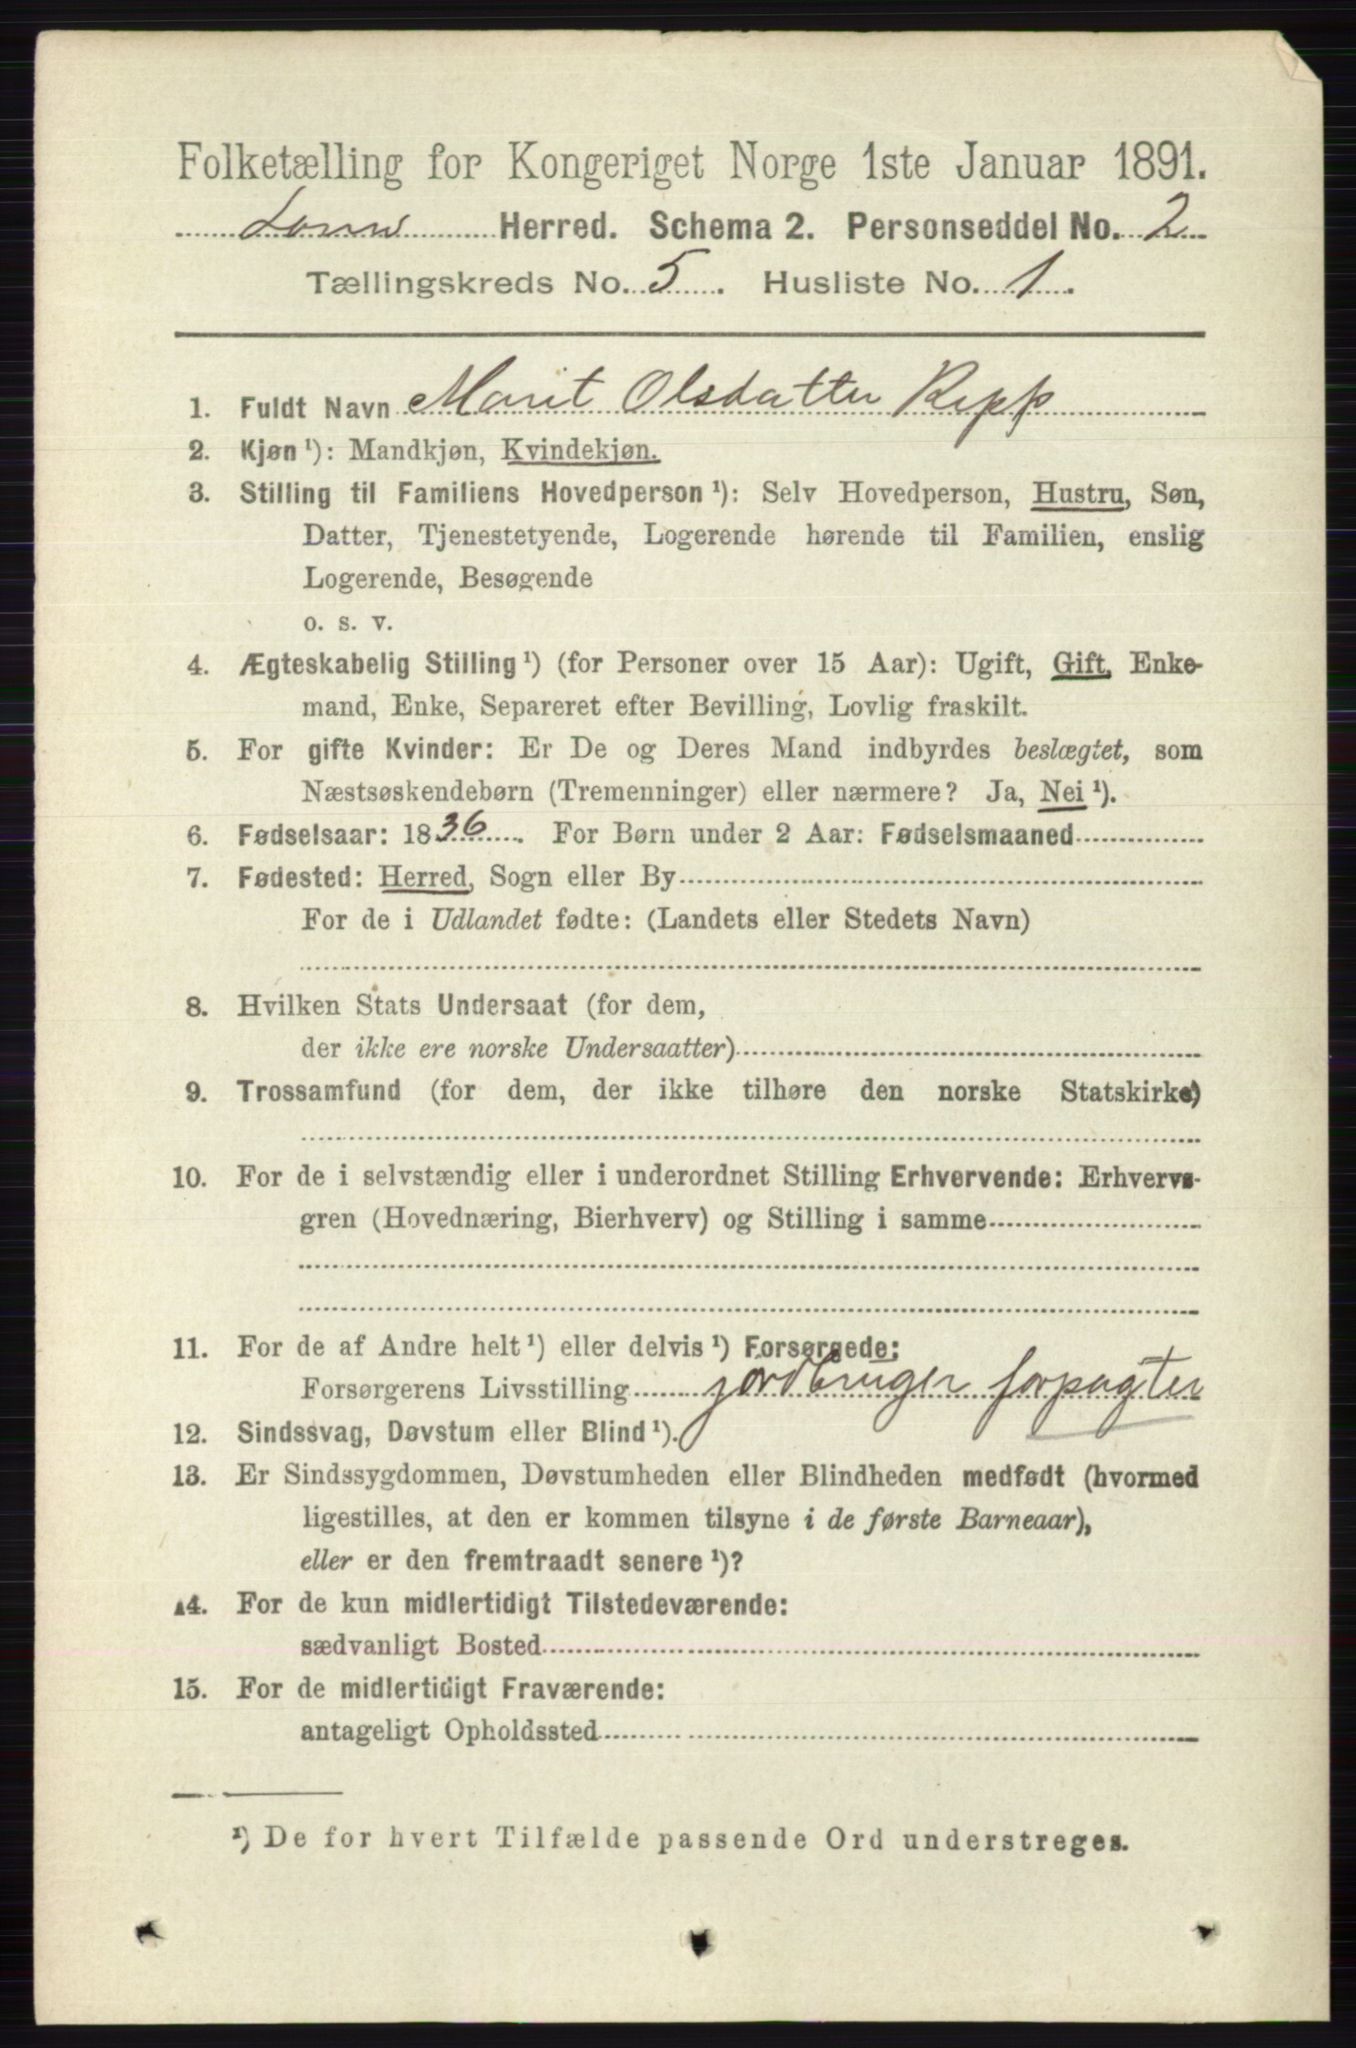 Folketælling for Kongeriget Norge 1ste Januar 1891.
Lomw Herred. Schema 2. Personseddel No. 2
Tællingskreds No. 5. Husliste No. 1.
1. Fuldt Navn Marit Olsdatter Repp
2. Kjøn ¹): Mandkjøn, Kvindekjøn.
3. Stilling til Familiens Hovedperson ¹): Selv Hovedperson, Hustru, Søn,
Datter, Tjenestetyende, Logerende hørende til Familien, enslig
Logerende, Besøgende
o. s. v.
4. Ægteskabelig Stilling ¹) (for Personer over 15 Aar): Ugift, Gift, Enke-
mand, Enke, Separeret efter Bevilling, Lovlig fraskilt.
5. For gifte Kvinder: Er De og Deres Mand indbyrdes beslægtet, som
Næstsøskendebørn (Tremenninger) eller nærmere? Ja, Nei ¹).
6. Fødselsaar: 1836. For Børn under 2 Aar: Fødselsmaaned
7. Fødested: Herred, Sogn eller By
For de i Udlandet fødte: (Landets eller Stedets Navn)
8. Hvilken Stats Undersaat (for dem,
der ikke ere norske Undersaatter)
9. Trossamfund (for dem, der ikke tilhøre den norske Statskirke)
10. For de i selvstændig eller i underordnet Stilling Erhvervende: Erhvervs-
gren (Hovednæring, Bierhverv) og Stilling i samme
11. For de af Andre helt ¹) eller delvis ¹) Forsørgede:
Forsørgerens Livsstilling jordbruger forpagter
12. Sindssvag, Døvstum eller Blind ¹).
13. Er Sindssygdommen, Døvstumheden eller Blindheden medfødt (hvormed
ligestilles, at den er kommen tilsyne i de første Barneaar),
eller er den fremtraadt senere ¹)?
14. For de kun midlertidigt Tilstedeværende:
sædvanligt Bosted
15. For de midlertidigt Fraværende:
antageligt Opholdssted
¹) De for hvert Tilfælde passende Ord understreges.